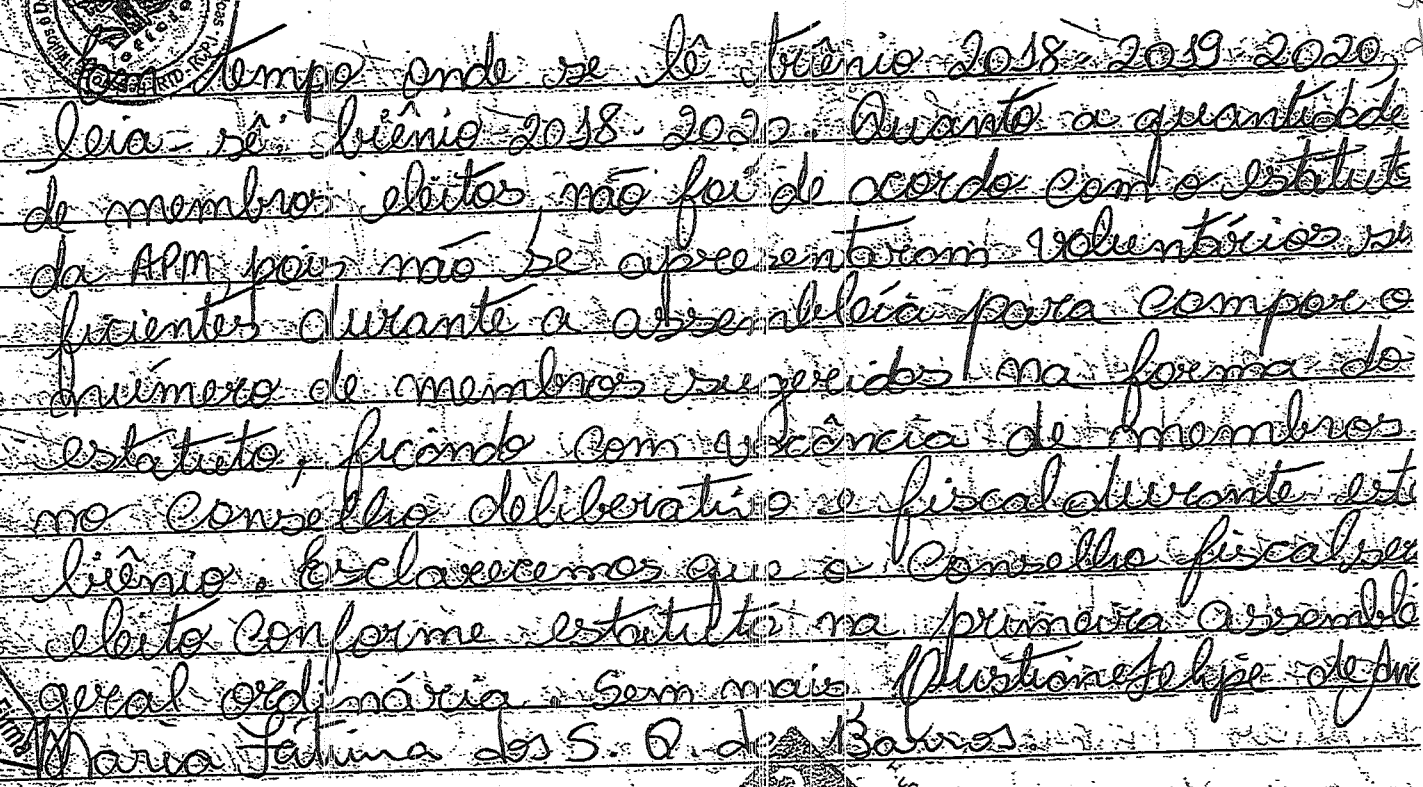 tempo onde se lê triênio 2018-2019-2020,
leia-sê: biênio 2018-2020. Quanto a quantidade
de membros eleitos não foi de acordo com o estatut
da APM, pois não se apresentaram voluntários su
ficientes durante a assembleia para compor o
número de membros sugeridos na forma do
estatuto, ficando com vacância de membros
no conselho deliberativo e fiscal durante este
biênio. Esclarecemos que o Conselho fiscal ser
eleito conforme estatuto na primeira assemble
geral ordinária. Sem mais Felipe de
Maria Fátima dos S. Q. de Barros.